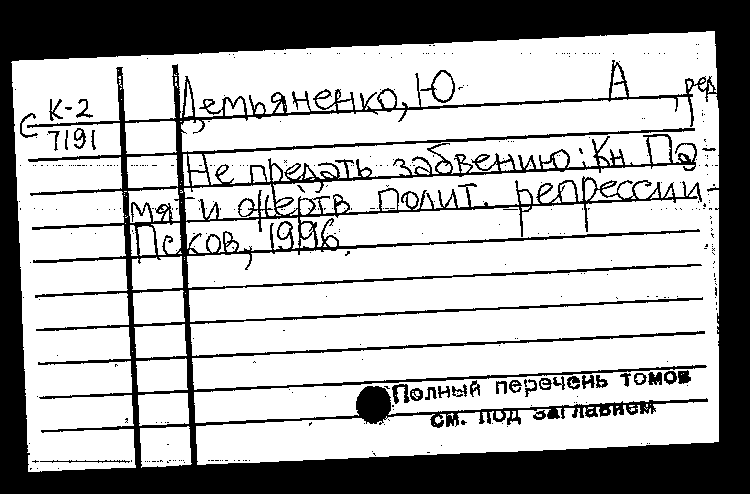 С К-2
7191
Демьяненко, Ю А , ред
Не предать забвению: Кн. Па-
мяти жертв полит. репрессии.-
Псков, 1996.
Полный перечень томов
см. под заглавием